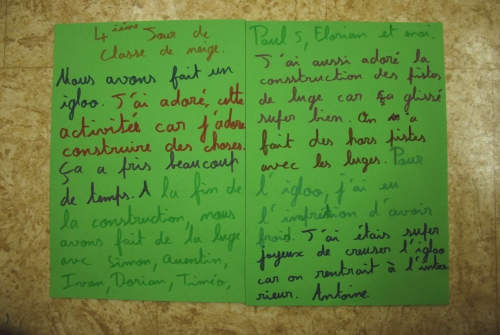 4ième Jour de
Classe de neige.
Nous avons fait un
igloo. J'ai adoré, cette
activités car j'adore
construire des choses.
Ça a pris beaucoup
de temps. A la fin de
la construction, nous
avons fait de la luge
avec Simon, Quentin,
Ivan, Dorian, Timéo,
Paul S, Elorian et moi.
J'ai aussi adoré la
consstruction des pistes
de luge car ça glissé
super bien. On a
fait des hors pistes
avec les luges. Pour
l'igloo, j'ai eu
l'imprétion d'avoir
froid. J'ai étais super
joyeux de creuser l'igloo
car on rentrait à l'inté
rieur. Antoine.